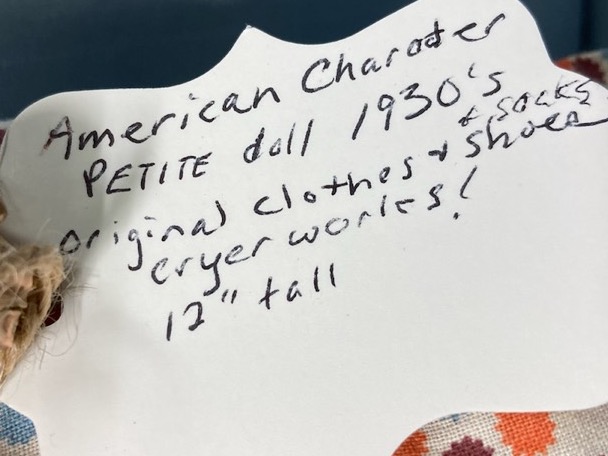 American Charater
PETITE doll 1930's
+ socks
original clothes + shoes
cryer works!
12" tall